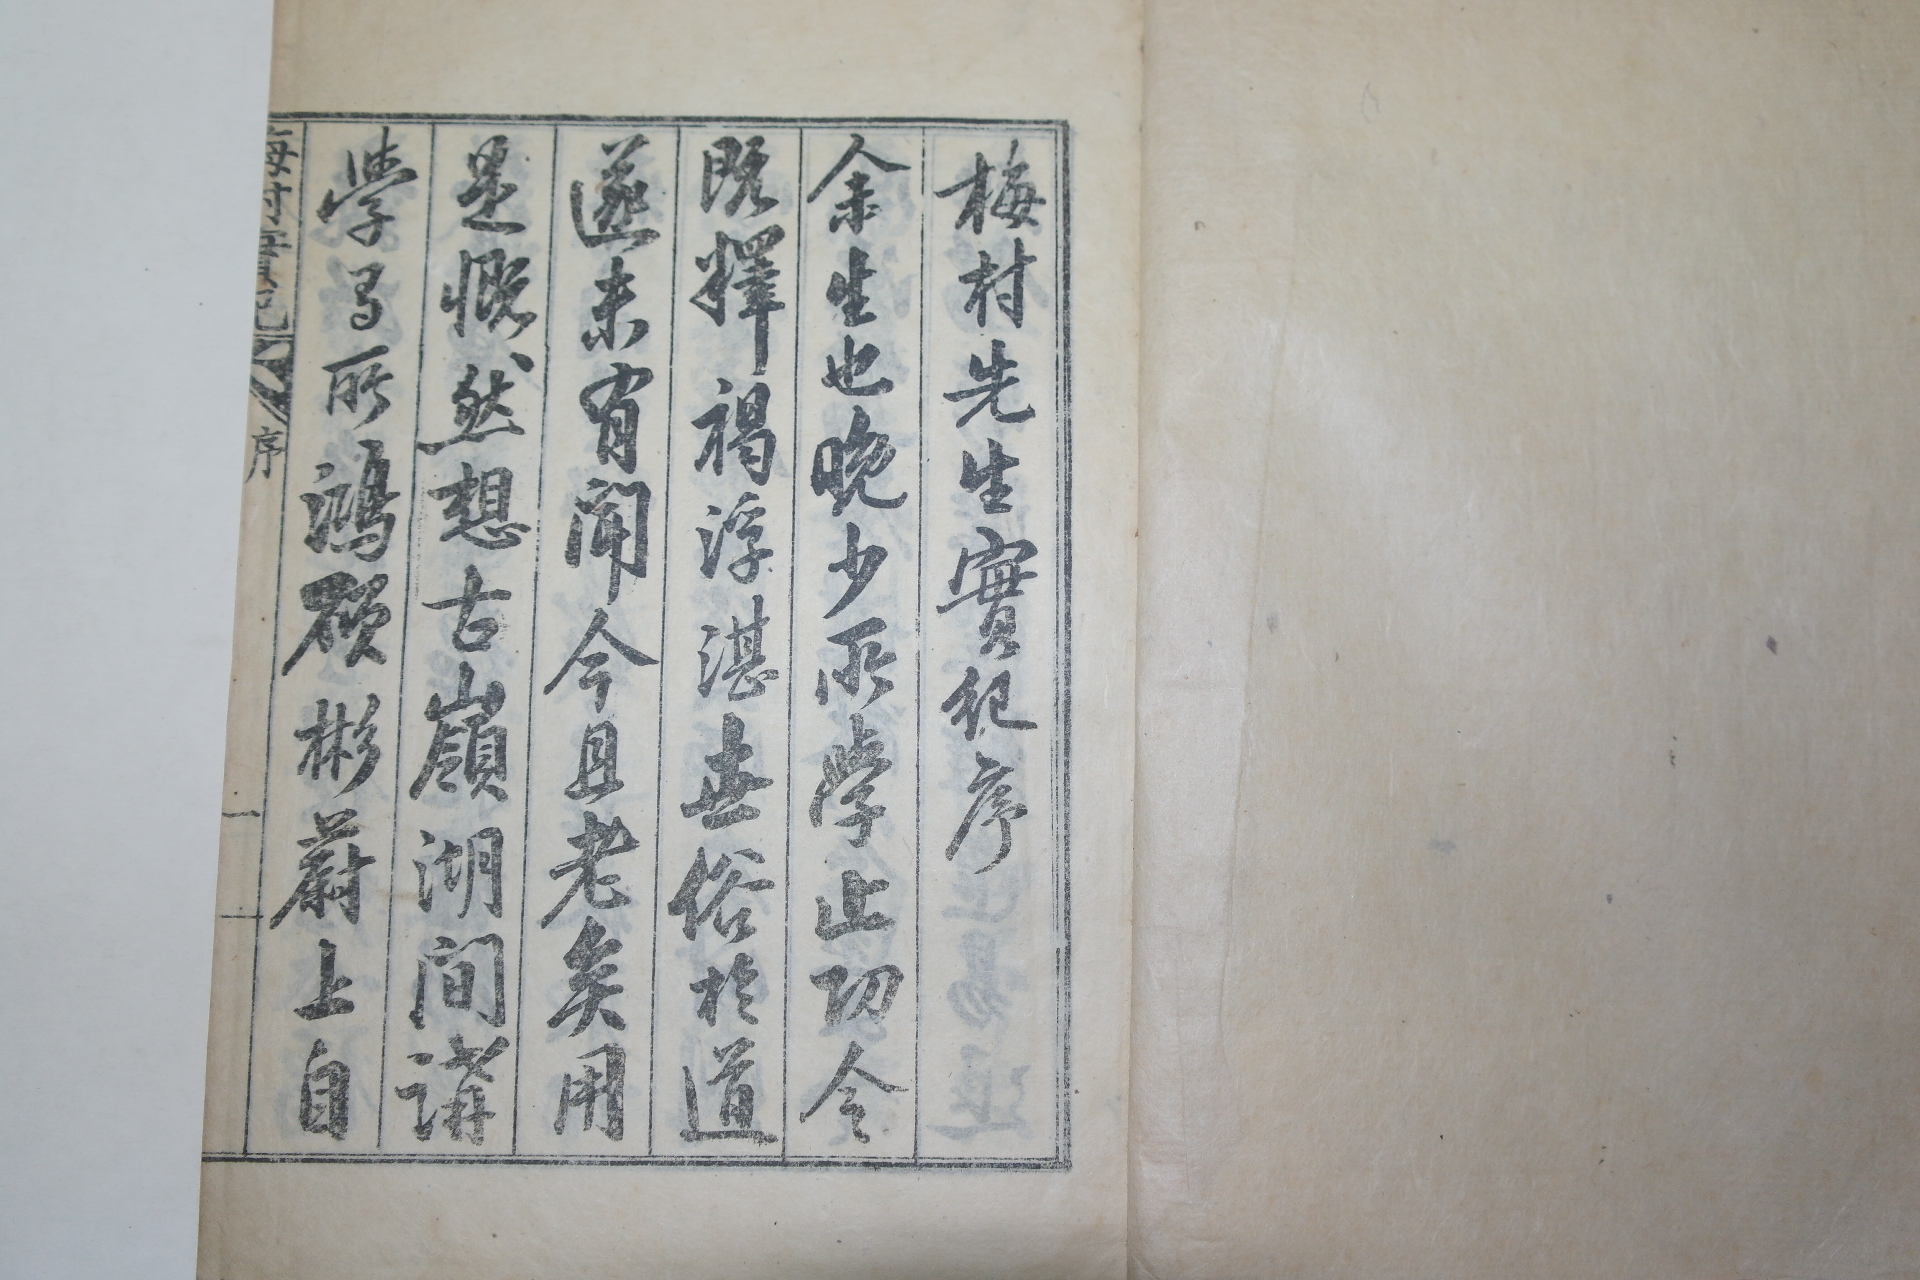 梅村先生實紀序
余生也晚少所學止功令
既釋褐浮湛世俗於道
遂未有聞今且老矣用
是慨然想古嶺湖間講
學之所鴻碩彬蔚上自
梅村實紀 序 一